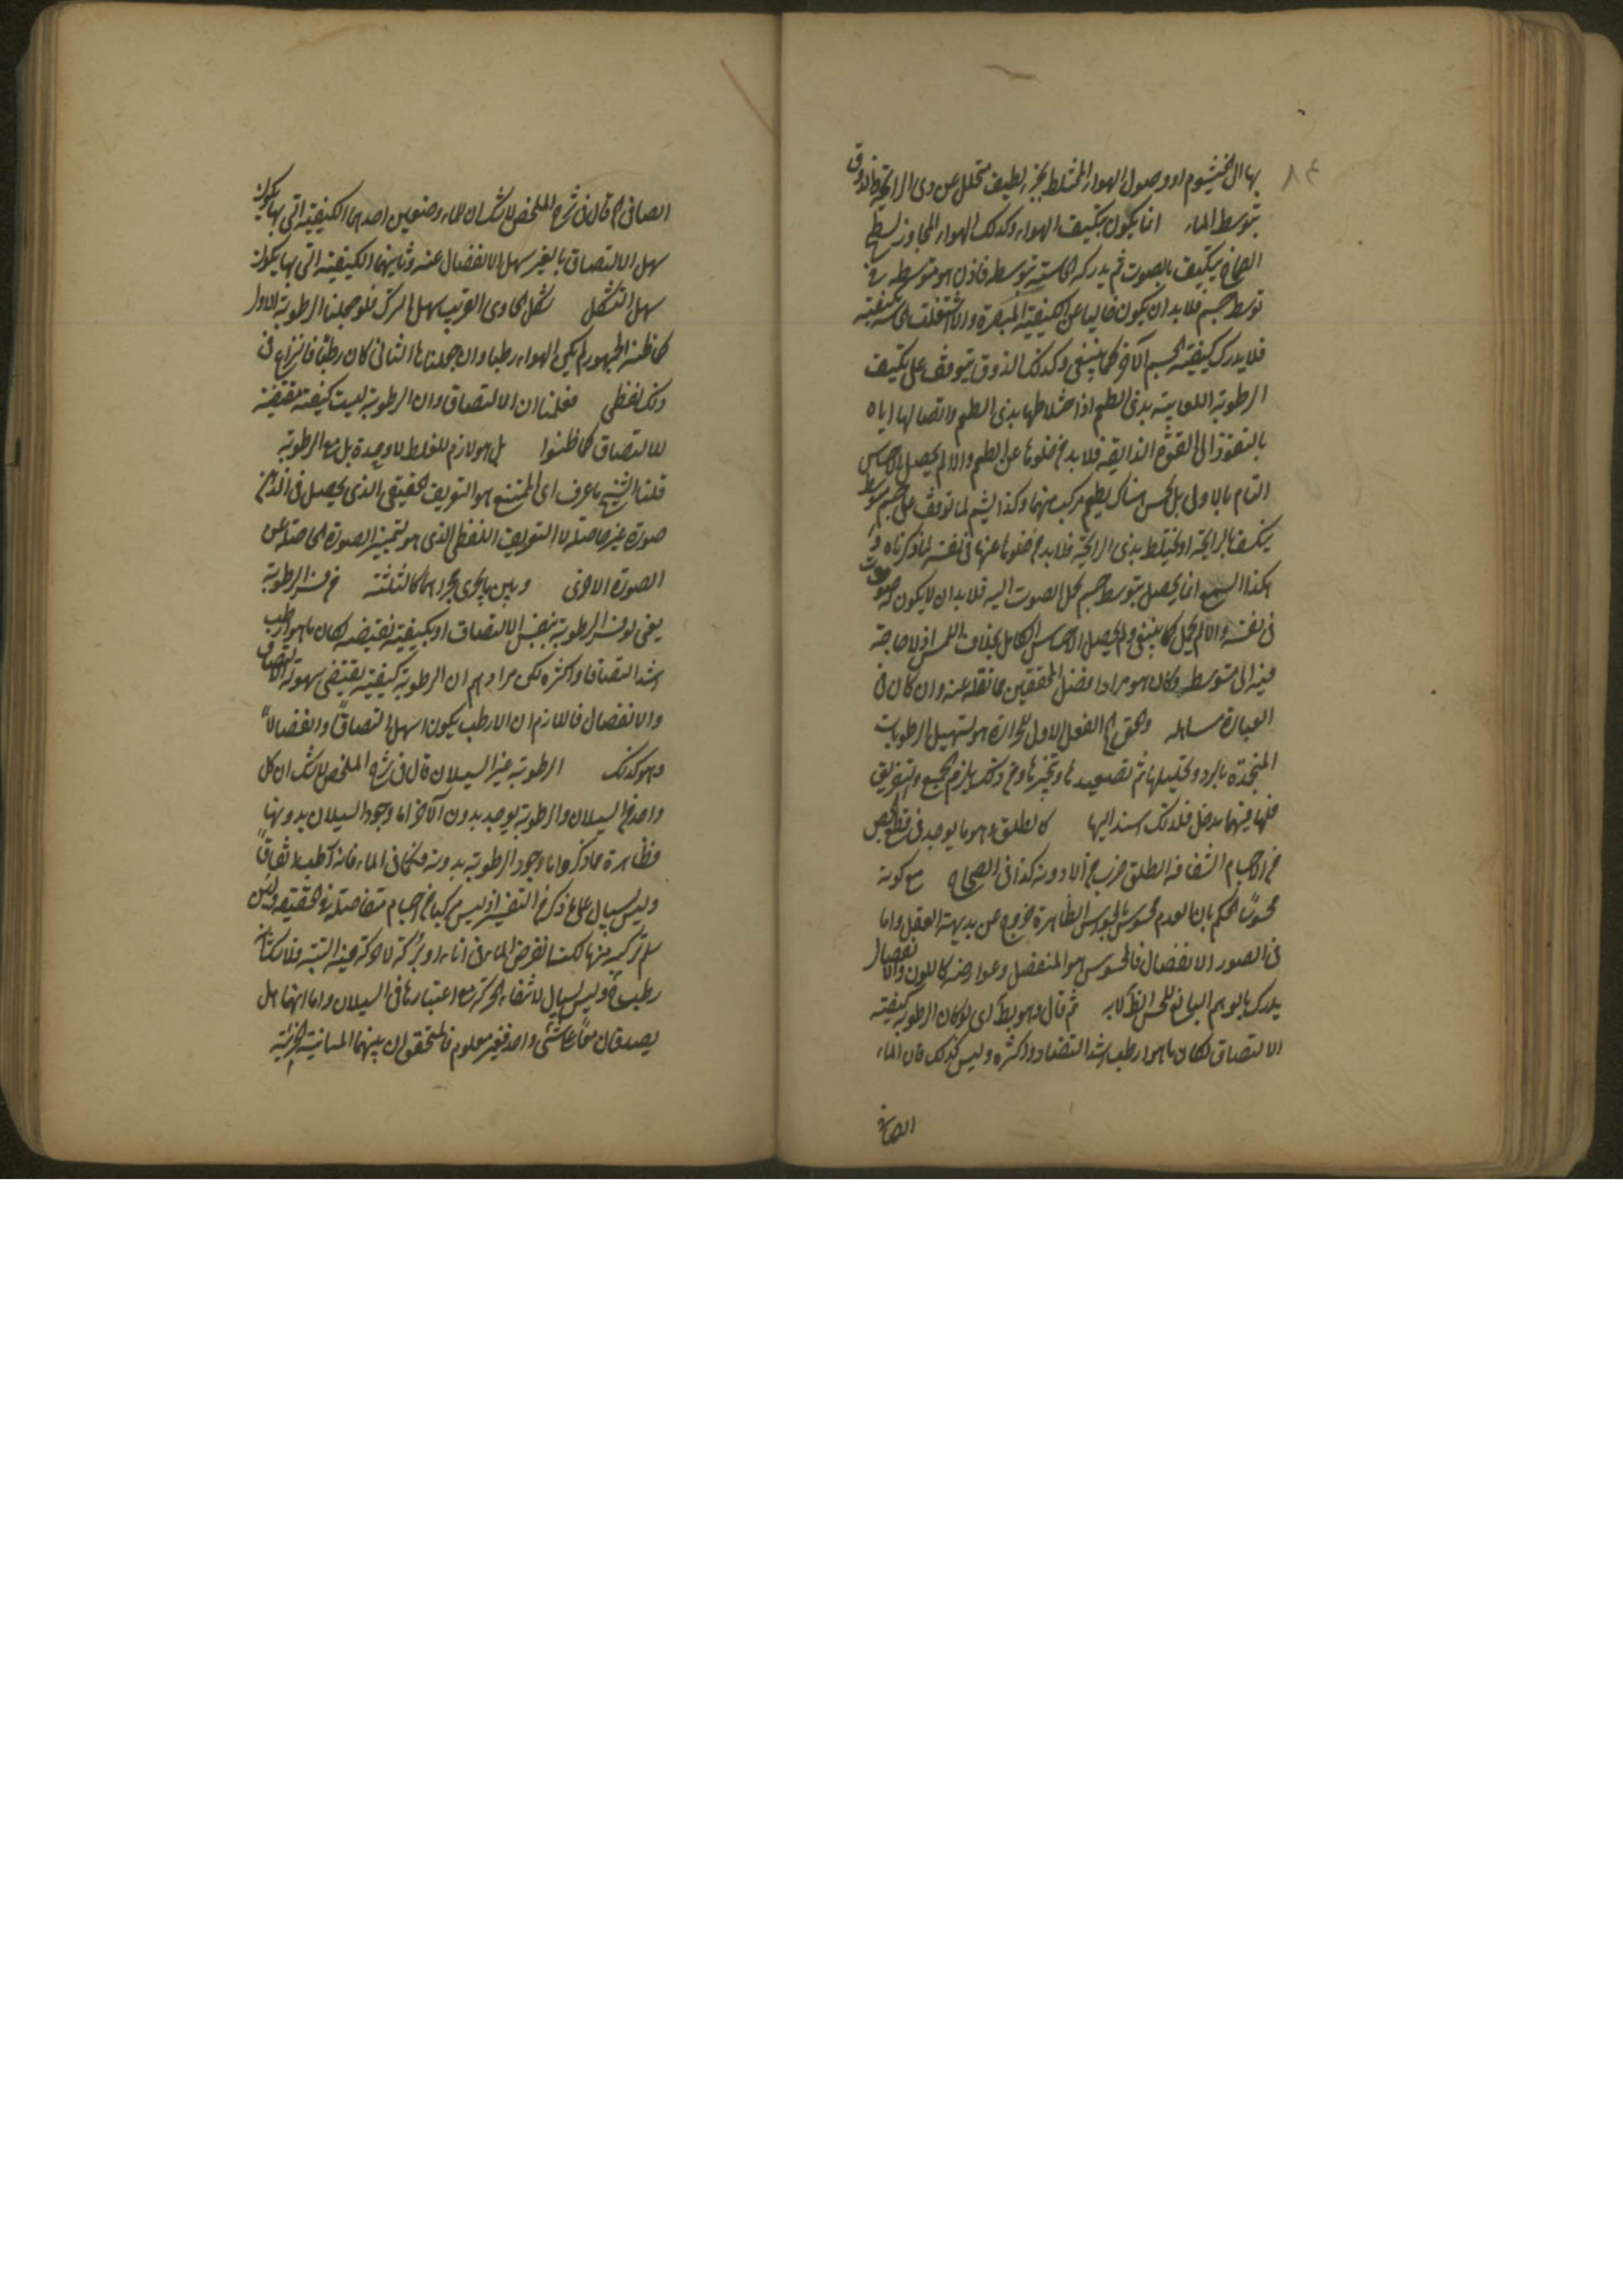 بها الى الخيشوم او وصول الهواء المختلط بجزء لطيف متحلل عن ذى الرايحة والذوق
بتوسط الماء انما يكون بتكيف الهواء وكذلك الهواء المجاور لسطح
الصماخ يتكيف بالصوت ثم يدركه الحاسة بتوسطه فاذن هو متوسط فى
توسط جسم فلا بد ان يكون خاليا عن الكيفية المبصرة والا اشتغلت الحاسة بكيفيته
فلا يدرك كيفية الجسم الآخر كما ينبغى وكذلك الذوق يتوقف على تكيف
الرطوبة اللعابية بذى الطعم اذ اختلاطها بذى الطعم واتصالها اياه
بالنفوذ الى القوة الذايقة فلا بد من خلوها عن الطعم والا لم يحصل الاحساس
التام بالاولى بل يحس هناك بطعم مركب منهما وكذا الشم لما توقف على جسم متوسط
يتكيف بالرايحة او يختلط بذى الرايحة فلا بد من خلوها عنها فى نفسه لما ذكرناه و
هكذا السمع انما يحصل بتوسط جسم يحمل الصوت اليه فلا بد ان لا يكون له صوت
فى نفسه والا لم يحمل كما ينبغى ولم يحصل الاحساس الكامل بخلاف اللمس اذ لا حاجة
فيه الى متوسط وكان هو مراد افضل المحققين مما نقله عنه وان كان فى
العبارة مساهلة والحق ان الفعل الاول للحرارة هو تسييل الرطوبات
المنجمدة بالبرد وتحليلها ثم تصعيدها وتبخيرها ومن ذلك يلزم الجمع والتفريق
فلها فيهما مدخل فلذلك اسند اليها كالطلق وهو ما يوجد فى قطع الجص
من الاجسام الشفافة الطلق ضرب من الادوية كذا فى الصحاح مع كونه
محسوسا الحكم بان العدم محسوس بالحواس الظاهرة خروج عن بديهة العقل واما
فى الصور الانفصال فالمحسوس هو المنفصل وعوارضه كاللون والانفصال
يدرك بالوهم التابع للحس الظاهر ثم قال وهو بط اى لو كان الرطوبة كيفية
الالتصاق لكان ما هو ارطب اشد التصاقا واكثره وليس كذلك فان الماء
الصافى
الصافى اه قال فى شرح الملخص لا شك ان للماء وصفين احدهما الكيفية التى بها يكون
سهل الالتصاق بالغير سهل الانفصال عنه وثانيهما الكيفية التى بها يكون
سهل التشكل بشكل الحاوى القريب سهل الترك فلو جعلنا الرطوبة الاول
كما ظنه الجمهور لم يكن الهواء رطبا وان جعلناها الثانى كان رطبا فالنزاع فى
ذلك لفظى فعلنا ان الالتصاق وان الرطوبة ليست كيفية مقتضية
للالتصاق كما ظنوا بل هو لازم للغلظ لا وحده بل مع الرطوبة
قلنا الشيخ ما عرف اى الممتنع هو التعريف الحقيقى الذى يحصل فى الذهن
صورة غير حاصلة لا التعريف اللفظى الذى هو لتمييز الصورة الحاصلة من
الصورة الاخرى وبين ما يجرى مجراها كالثلثة من فسر الرطوبة
يعنى لو فسر الرطوبة بنفس الالتصاق او بكيفية تقتضيه لكان ما هو ارطب
اشد التصاقا واكثره لكن مرادهم ان الرطوبة كيفية تقتضى سهولة الالتصاق
والانفصال فاللازم ان الارطب يكون اسهل التصاقا وانفصالا
وهو كذلك الرطوبة غير السيلان قال فى شرح الملخص لا شك ان كل
واحد من السيلان والرطوبة يوجد بدون الآخر اما وجود السيلان بدونها
فظاهرة مما ذكر واما وجود الرطوبة بدونه فكما فى الماء فانه رطب اتفاقا
وليس بسيال على ما ذكر من التفسير اذ ليس مركبا من اجسام متفاصلة فى الحقيقة ولئن
سلم تركبه منها لكنا نفرض الماء فى اناء او بركة لا حركة فيه البتة فلا شك انه
رطب ح وليس بسيال لانتفاء الحركة مع اعتبارها فى السيلان واما انهما هل
يصدقان معا على شئ واحد فغير معلوم فالمتحقق ان بينهما المباينة الجزئية